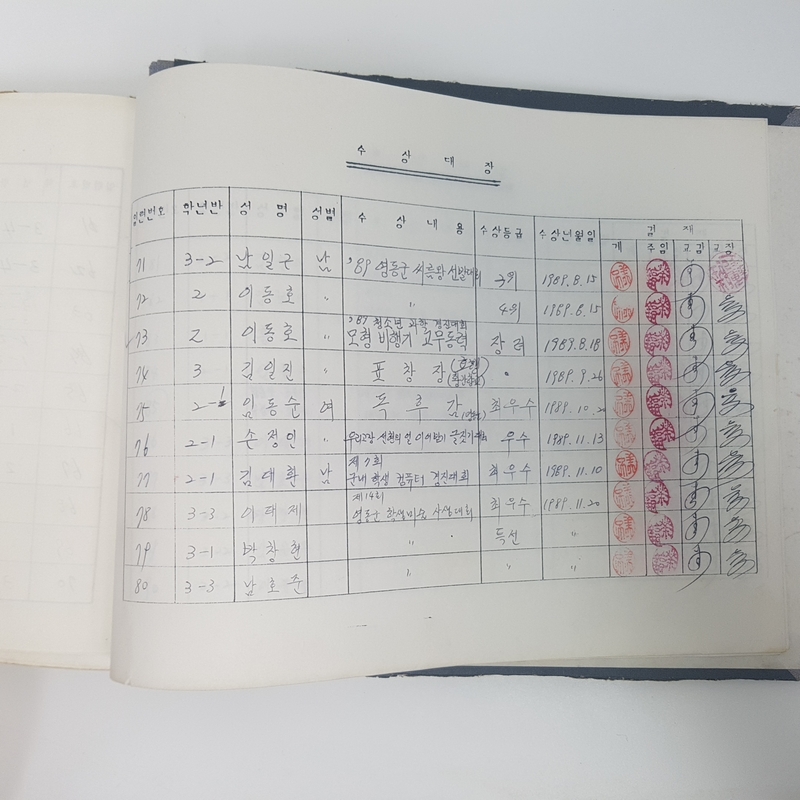 수상대장
일련번호 학년반 성명 성별 수상내용 수상등급 수상년월일 결재
계 주임 교감 교장
71 3-2 남일근 남 '89 영동군 씨름왕 선발대회 3위 1989.8.15
72 2 이동호 〃 〃 4위 1989.8.15
'89 청소년 과학 경진대회
73 2 이동호 〃 모형 비행기 고무동력 장려 1989.8.18
74 3 김일진 〃 표창장 1989.9.26
75 2-1 임동순 여 독후감 최우수 1989.10.20
76 2-1 손정인 〃 우리고장 선현의 얼 이어받기 글짓기 우수 1989.11.13
제7회
77 2-1 김대환 남 군내 학생 컴퓨터 경진대회 최우수 1989.11.10
제14회
78 3-3 이태제 영동군 학생미술 사생대회 최우수 1989.11.20
79 3-1 박창현 〃 특선 〃
80 3-3 남호준 〃 〃 〃